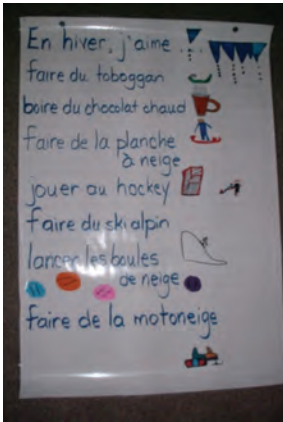 En hiver, j'aime
faire du toboggan
boire du chocolat chaud
faire de la planche
à neige
jouer au hockey
faire du ski alpin
lancer les boules
de neige
faire de la motoneige